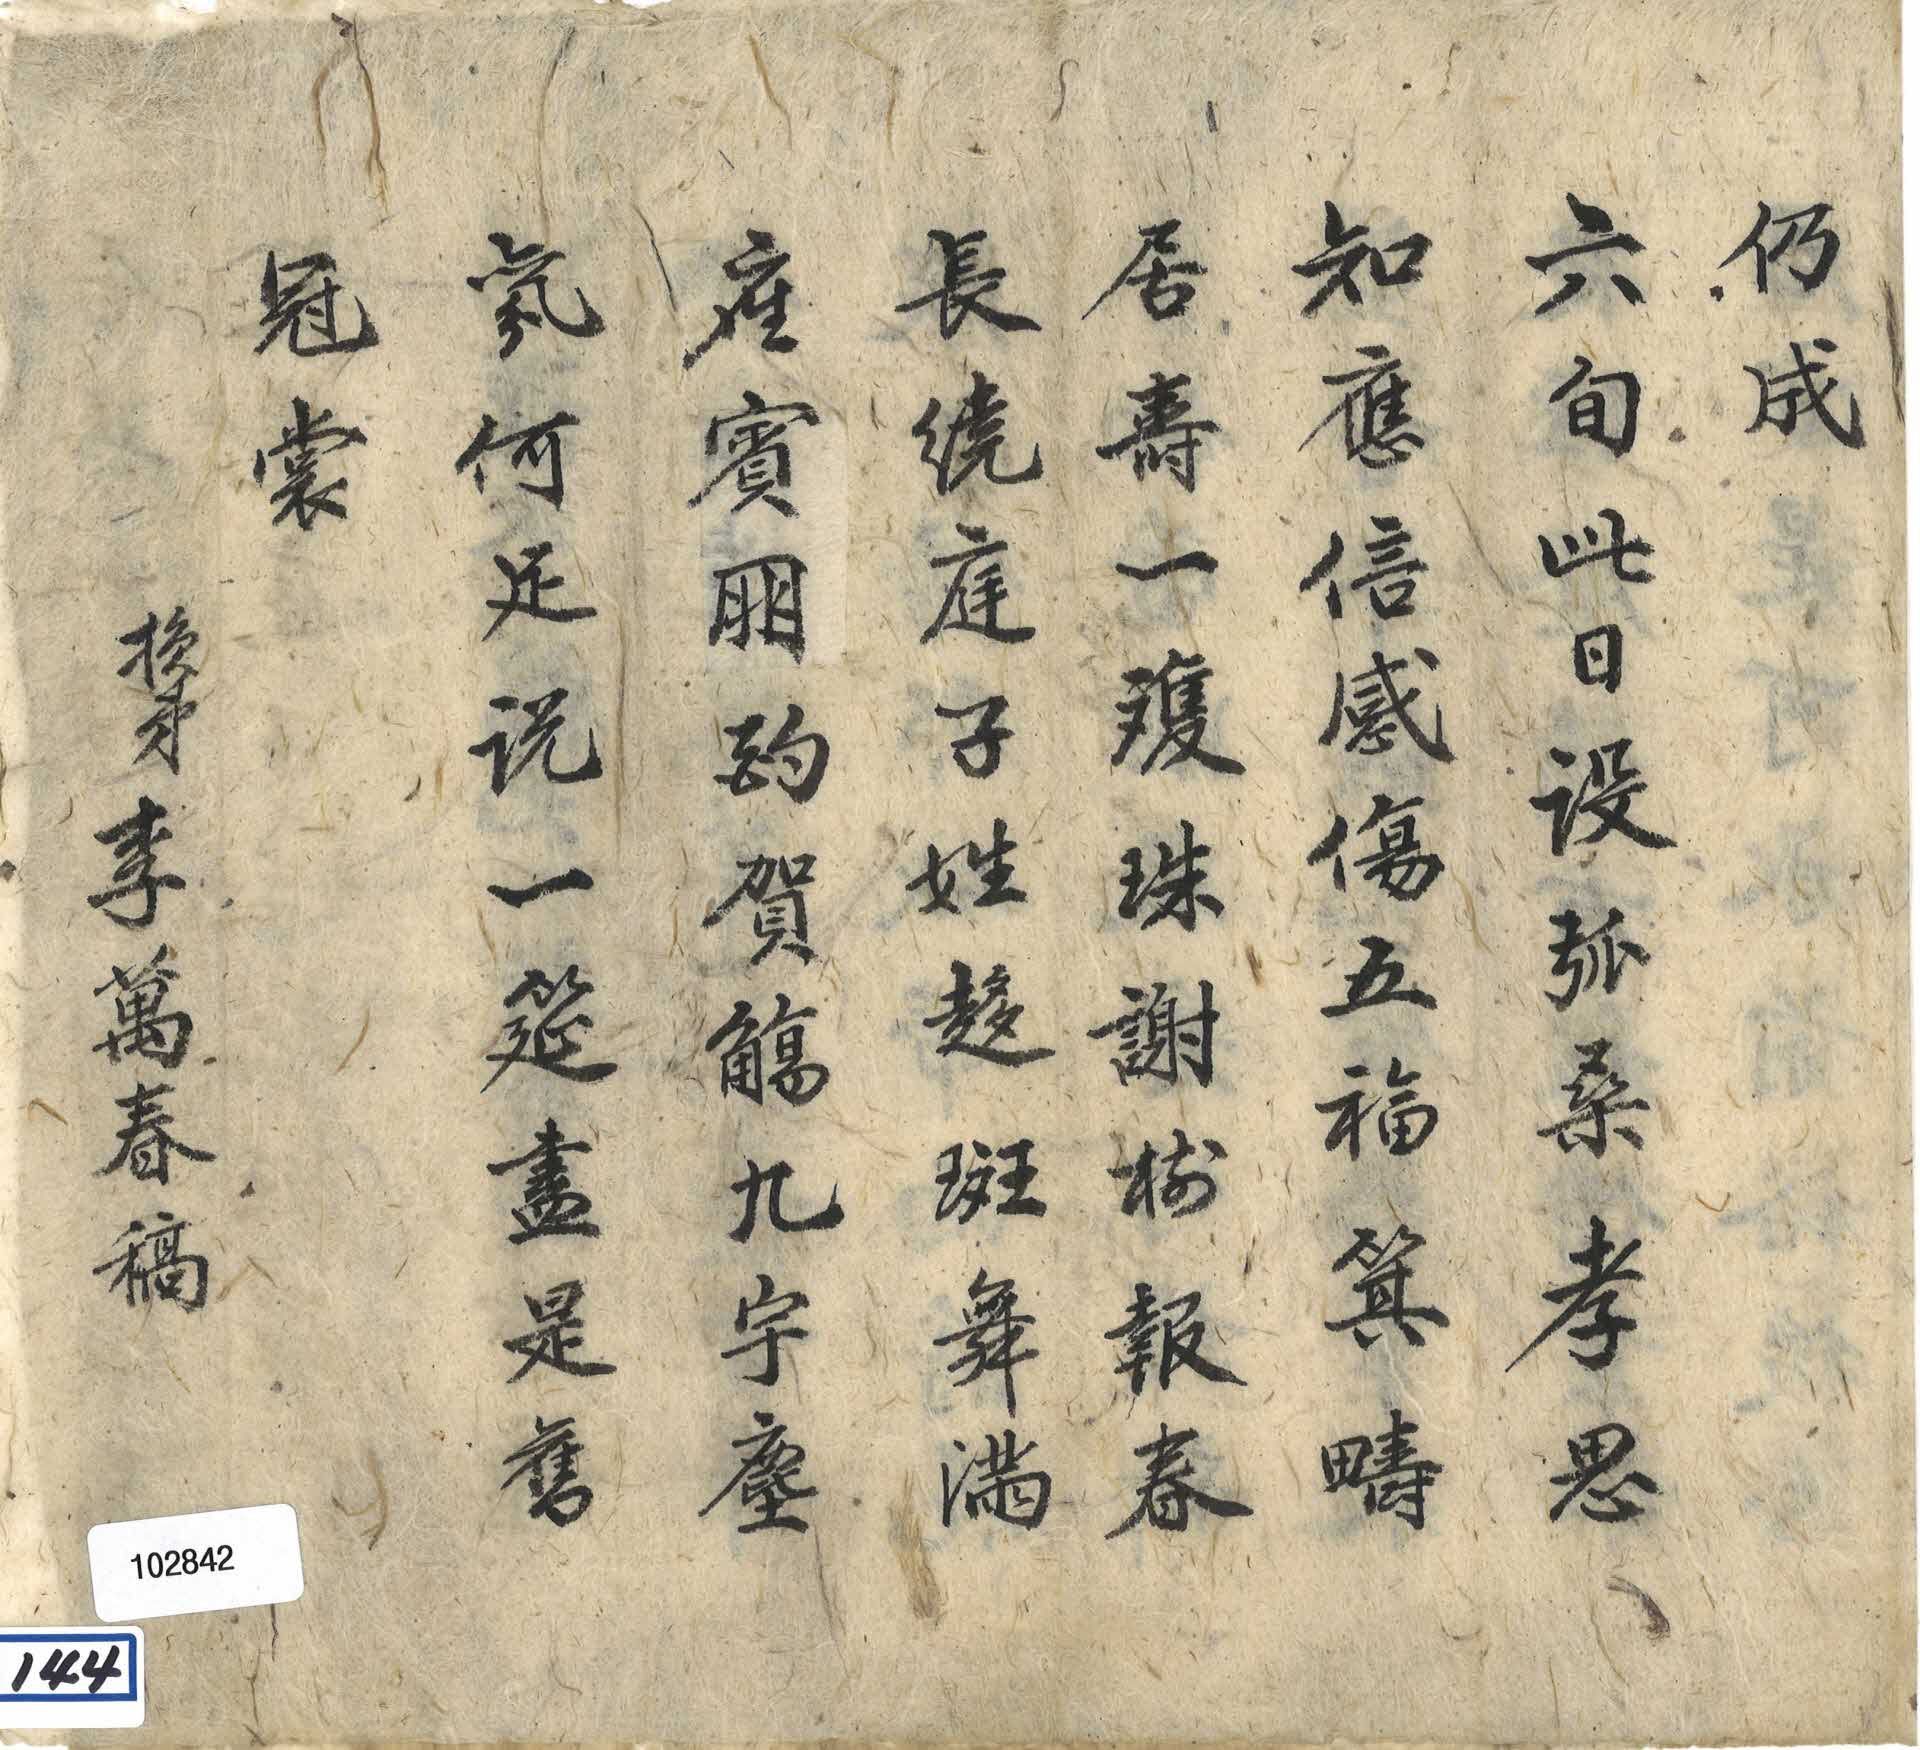 仍成
六旬此日設弧桑孝思
知應倍感傷五福箕疇
居壽一瓊珠謝樹報春
長繞庭子姓趍斑舞滿
座賓朋酌賀觴九宇塵
氛何足說一筵盡是舊
冠裳
損弟李萬春稿
102842
144